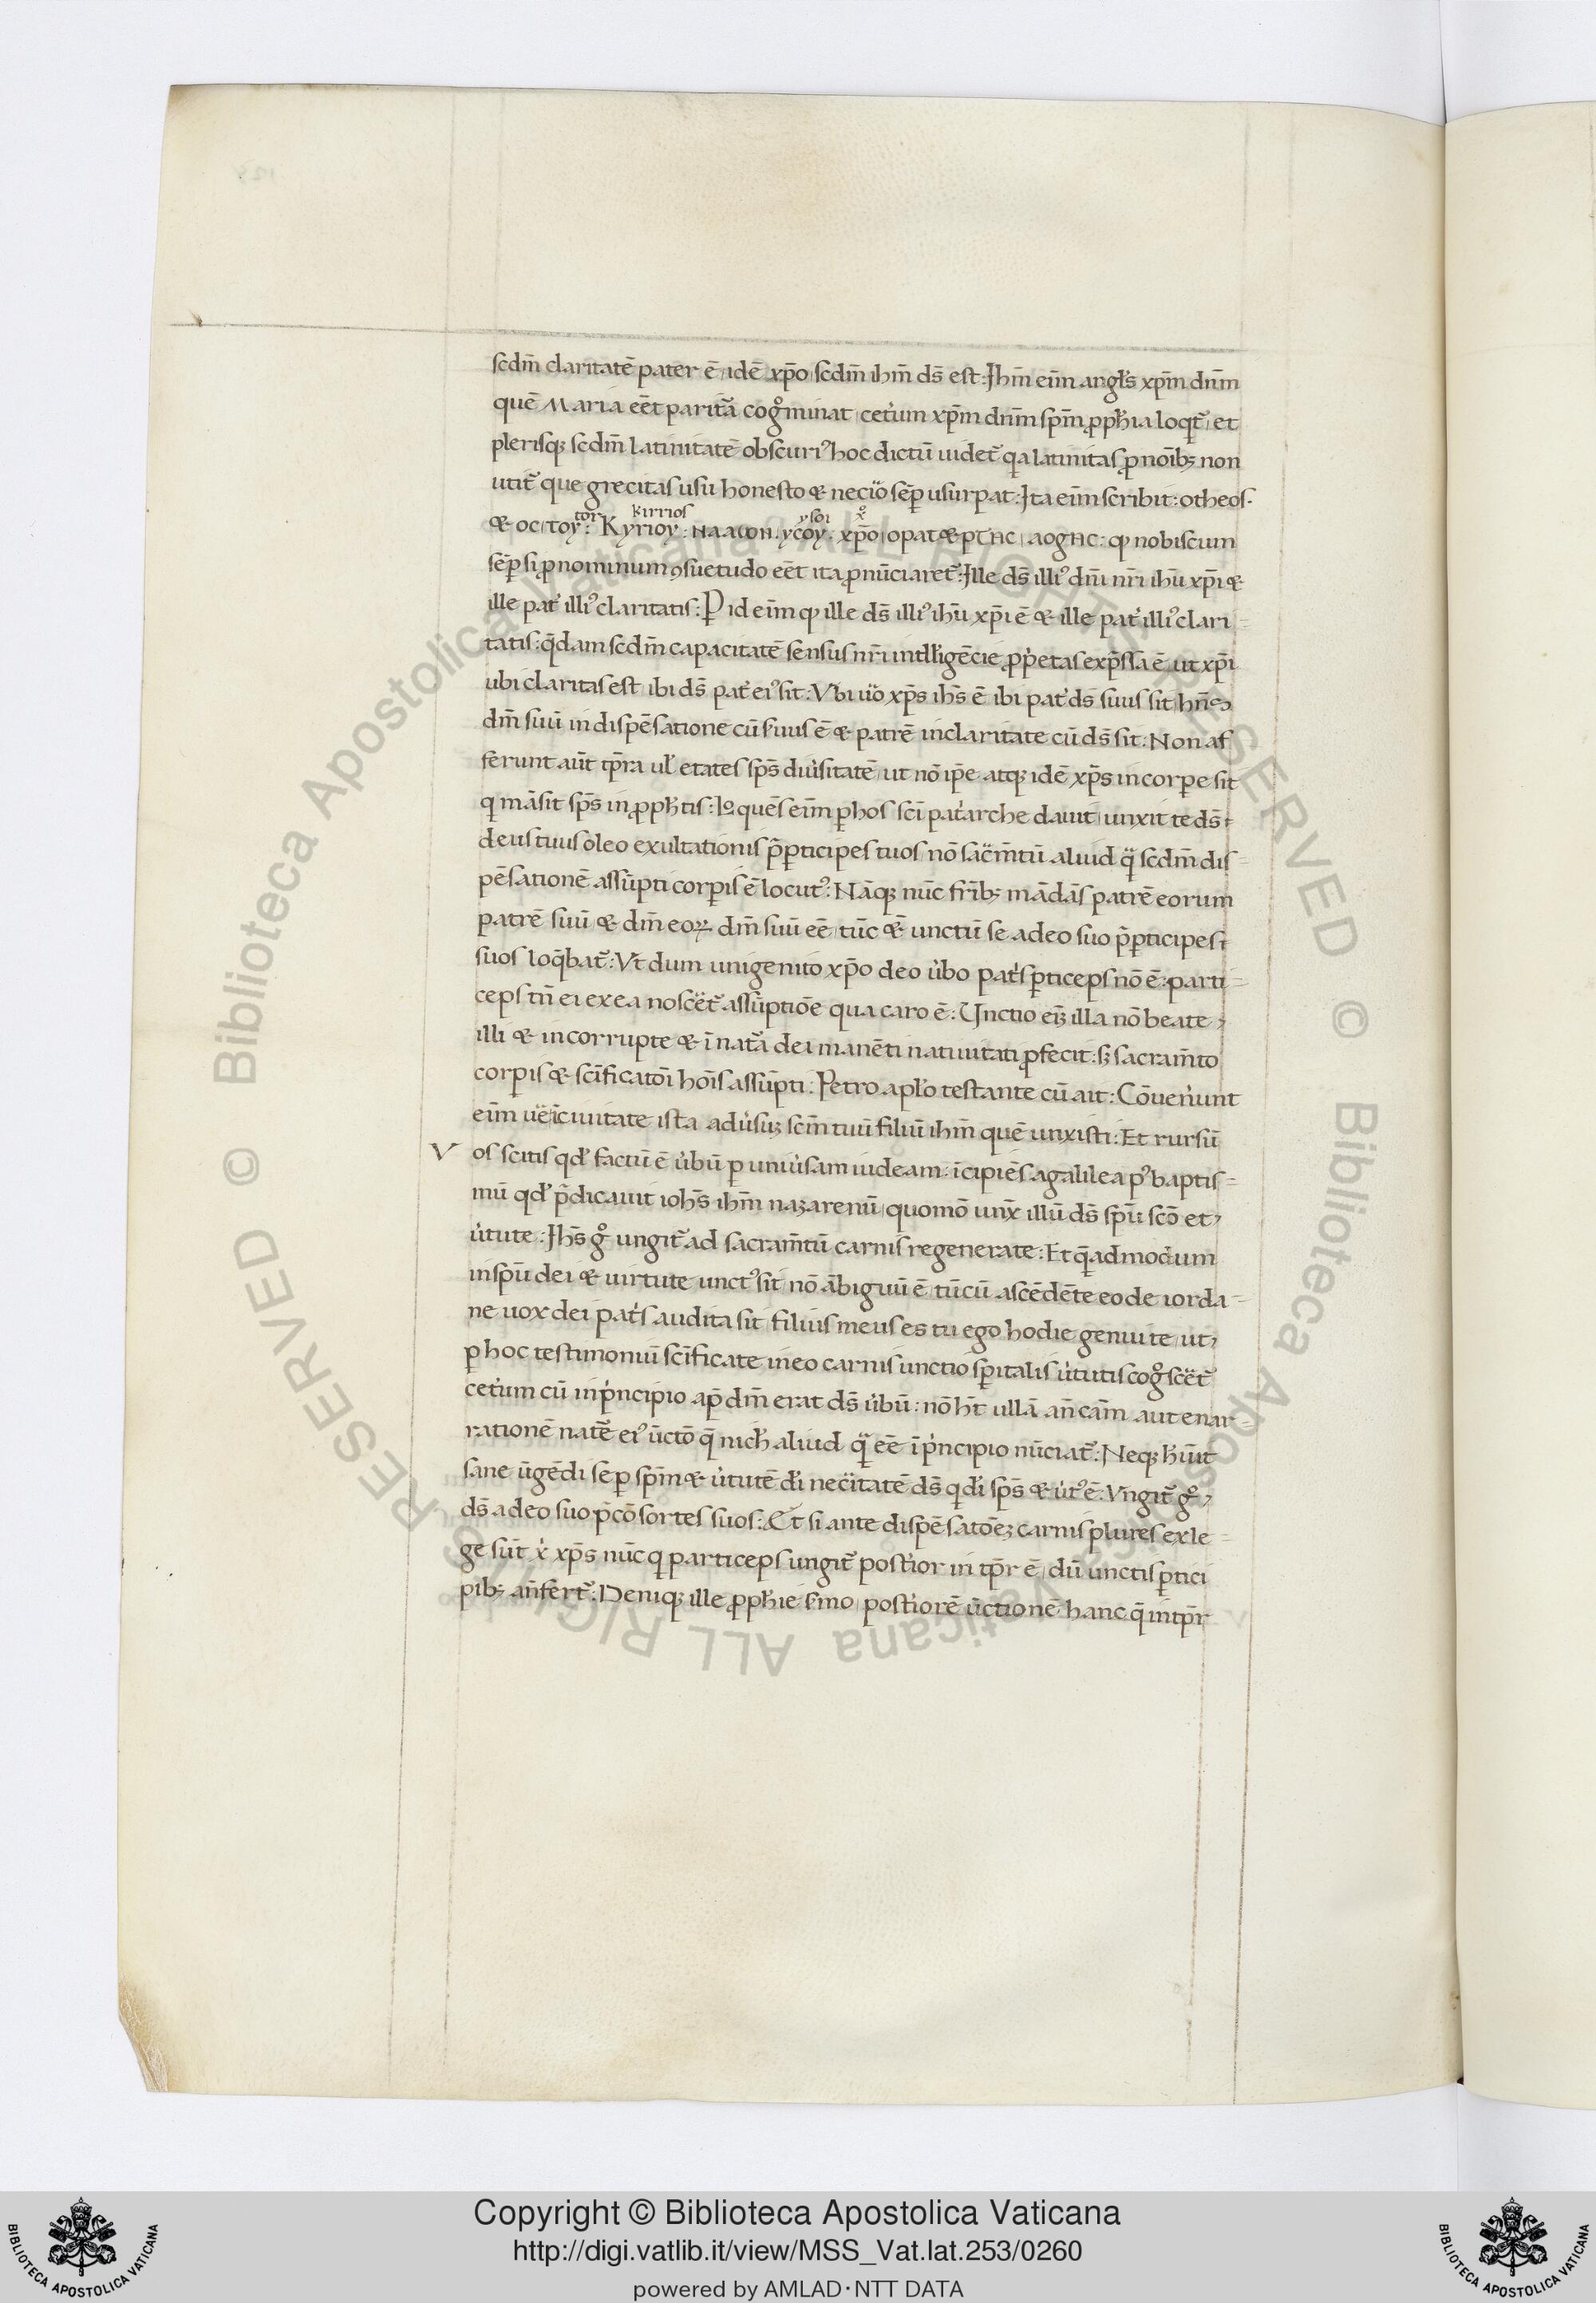 scdm̄ claritatē pater ē idē xp̄o scdm̄ ihm̄ ds̄ est: Jhm̄ eim̄ angl's xpm̄ dnm̄
quē Maria eēt paritā cogͦminat cet'um xpm̄ dnm̄ spm̄ ꝓph'ia loqt̄ et
plerisqꝫ scdm̄ latinitatē obscuriꝰ hoc dictū uidet̄ qa latinitas ꝓnoībꝫ non
utit̄ que grecitas usu honesto & necīo sēp usurpat: Ita eim̄ scribit: otheos.
tor kirrios ysoi
& oc toy: Kyrioy: NAAWN. ycoy. xp̄o opat&ptnc aognc: qͥ nobiscum
sēp si ꝓnominum ꝯsuetudo eēt ita ꝓnūciaret̄: Ille ds̄ illiꝰ dnī nrī ihū xpī &
ille pat' illiꝰ claritatis: P id eim̄ qͥ ille ds̄ illiꝰ ihū xpī ē & ille pat' illiꝰ clari-
tatis: q̄dam scdm̄ capacitatē sensus nrī intlligēcie ꝓp'etas exp̄ssa ē ut xpī
ubi claritas est ibi ds̄ pat' eiꝰ sit: Vbi uͦo xps̄ ihs̄ ē ibi pat' ds̄ suus sit hn̄s
dm̄ suū in dispēsatione cū suus ē & patrē in claritate cū ds̄ sit: Non af
ferunt aūt tp̄ra ul' etates sps̄ diu'sitatē ut nō ip̄e atqꝫ idē xps̄ in corp̲e sit
qͥ māsit sps̄ in ꝓph'tis: Loquēs eim̄ p̲ hos scī pat'arche dauit unxit te ds̄
deus tuus oleo exultationis p̄ p̲ticipes tuos nō sacm̄tū aliud qͣ scdm̄ dis-
pēsationē assūpti corp̲is ē locutꝰ: Nāqꝫ nūc frībꝫ mādās patrē eorum
patrē suū & dm̄ eoꝝ dm̄ suū eē tūc & unctū se a deo suo p̄ p̲ticipes
suos loq̄bat̄: Vt dum unigenito xp̄o deo u'bo pat's p̲ticeps nō ē: parti-
ceps tn̄ ei ex ea noscet̄ assūptiōe qua caro ē: Unctio eiꝫ illa nō beate
illi & incorrupte & ī natā dei manēti natiuitati ꝓfecit: sꝫ sacram̄to
corp̲is & scīficatōī hoīs assūpti: Petro aplo testante cū ait: Cōuen'unt
eim̄ ue īciuitate ista adu'suꝫ scm̄ tuū filiū ihm̄ quē unxisti: Et rursū
Vos scitis qd' factū ē u'bū p̲ uniu'sam iudeam: īcipiēs a galilea pꝰ baptis-
mū qd' p̄dicauit iohs̄ ihm̄ nazarenū quomō unx̄ illū ds̄ spū scō et
u'tute: Jhs̄ gͦ ungit̄ ad sacram̄tū carnis regenerate: Et q̄admodum
in spū dei & uirtute unctꝰ sit nō ābiguū ē tūcū ascēdēte eo de iorda-
ne uox dei pat's audita sit filius meus es tu ego hodie genui te ut
p̲ hoc testimoniū scīficate in eo carnis unctio sp̲italis u'tutis cogͦscet̄
cet'um cū in p'ncipio ap̄ dm̄ erat ds̄ u'bū: nō ht̄ ullā an̄ cām aut enar-
rationē natē eiꝰ ūctō q̄ nich' aliud qͣ eē ī p'ncipio nūciat̄: Neqꝫ h'uit
sane ūgēdi sep̲ spm̄ & u'tutē d'i nec̄itatē ds̄ q d'i sps̄ & u'tꝰ ē: Vngit̄ gͦ
ds̄ a deo suo p̄ cōsortes suos: Et si ante dispēsatōeꝫ carnis plures ex le-
ge sūt x' xps̄ nūc qͥ particeps ungit̄ post'ior in tp̄r ē dū unctis p̲tici
pibꝫ an̄fert̄: Deniqꝫ ille ꝓph'ie s'mo post'iorē ūctionē hanc q̄ in tp̄r
Copyright © Biblioteca Apostolica Vaticana
http://digi.vatlib.it/view/MSS_Vat.lat.253/0260
powered by AMLAD·NTT DATA
BIBLIOTECA APOSTOLICA VATICANA
BIBLIOTECA APOSTOLICA VATICANA